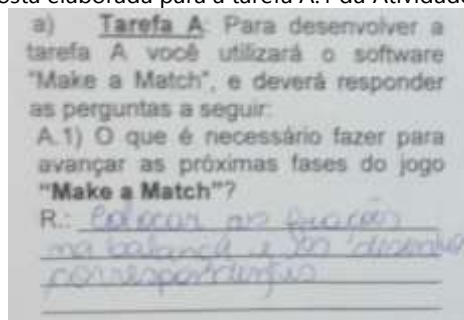 osta elaborada para a tarefa A.1 da Atividade
a) Tarefa A: Para desenvolver a
tarefa A você utilizará o software
"Make a Match", e deverá responder
as perguntas a seguir:
A.1) O que é necessário fazer para
avançar as próximas fases do jogo
"Make a Match"?
R.: Colocar as frações
na balança e os desenhos
correspondentes